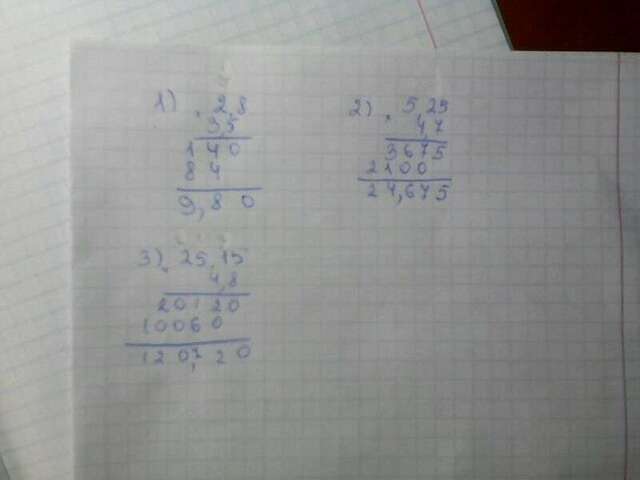 1) . 2,8
3,5
1 4 0
8 4
9,8 0
2) . 5,25
4,7
3675
2100
24,675
3) . 25,15
4,8
20120
10060
120,720